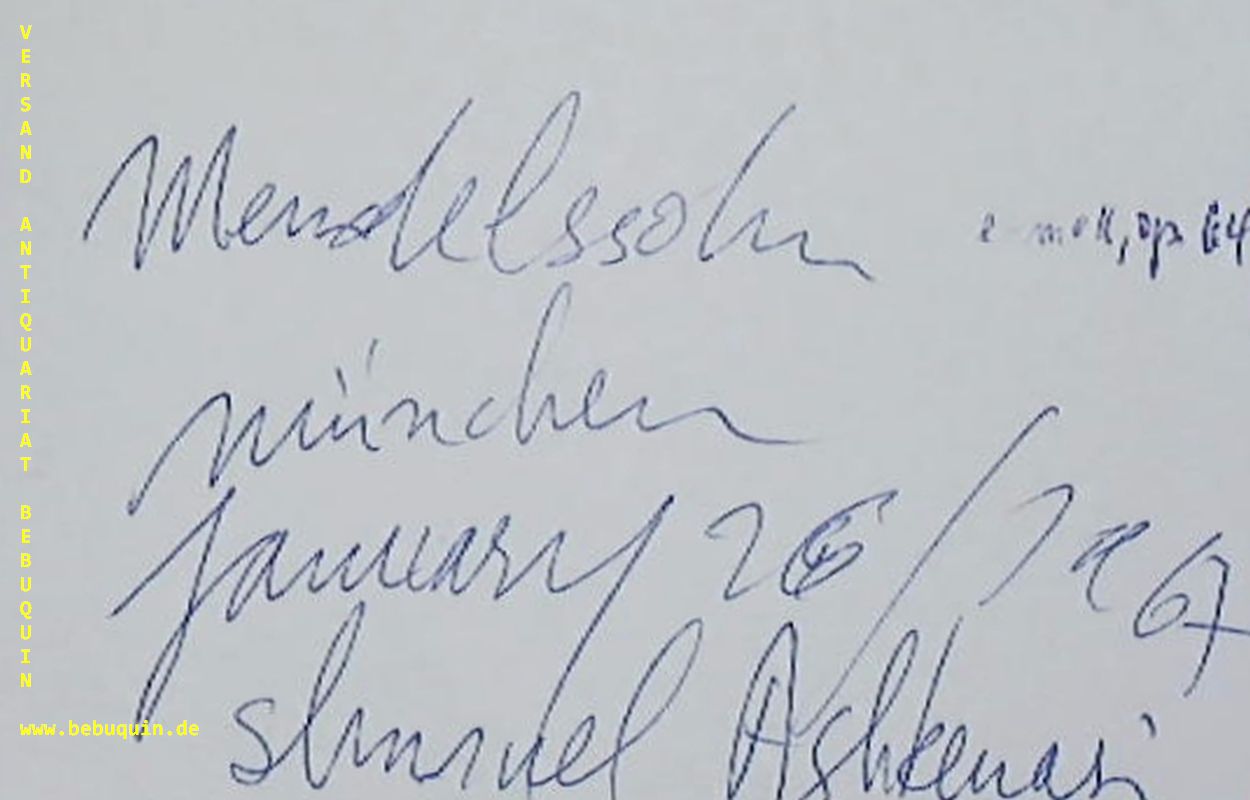 VERSAND ANTIQUARIAT BEBUQUIN
Mendelssohn e-moll, op. 64
münchen
January 26/1967
Shmuel Ashkenasi
www.bebuquin.de